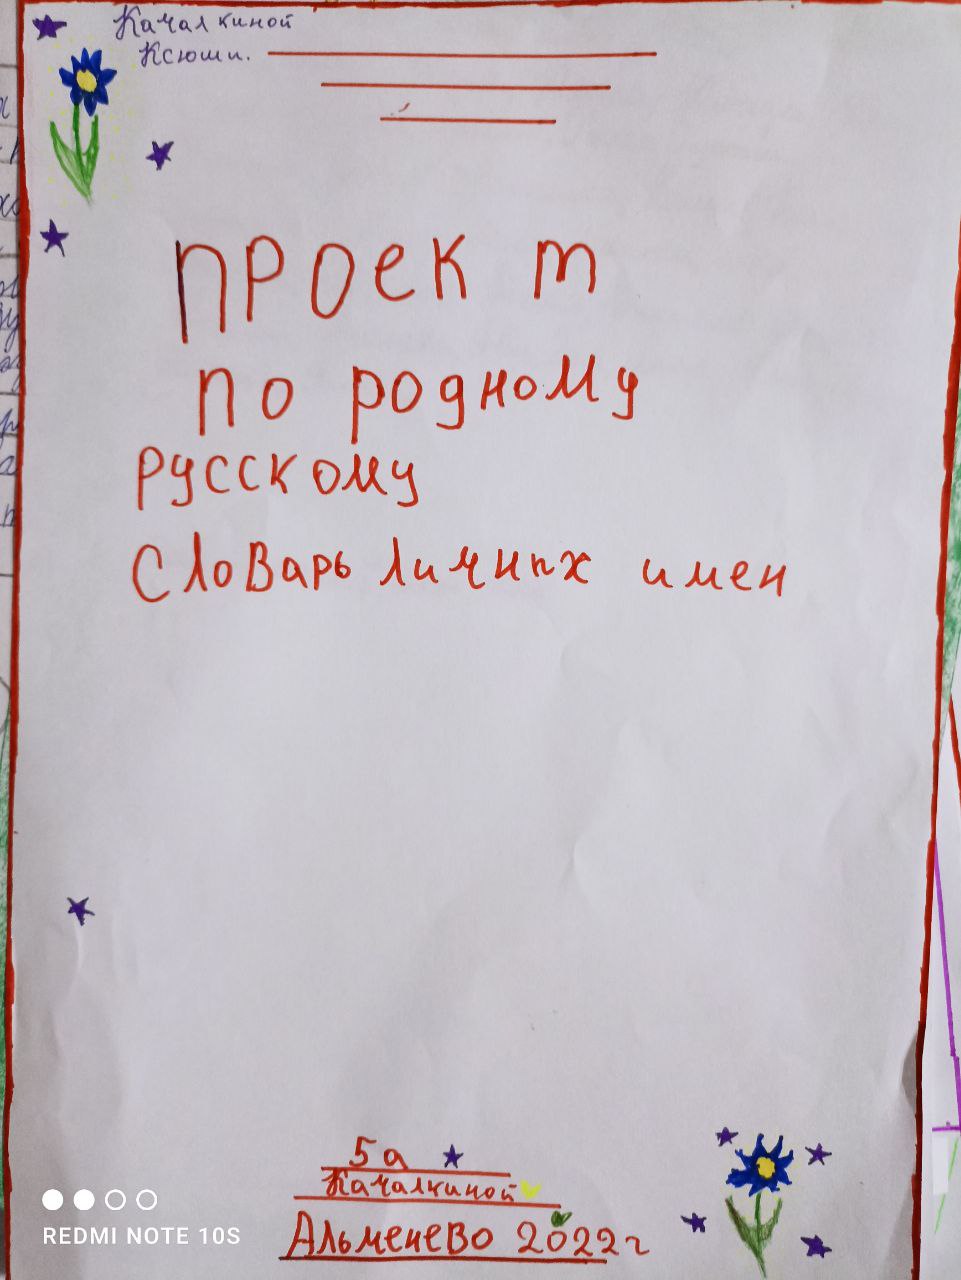 Качалкиной
Ксюши.
Проект
по родному
русскому
Словарь личных имен
5а
Качалкиной
Альменево 2022г
REDMI NOTE 10S